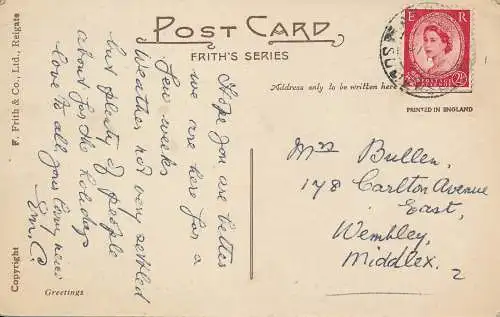 POST CARD
FRITH'S SERIES
Address only to be written here
E R
POSTAGE
2½D
PRINTED IN ENGLAND
F. Frith & Co., Ltd., Reigate
Copyright
Greetings
Hope you are better
we are here for a
few weeks
Weather not very settled
but plenty of people
about for the holiday
love to all your loving niece
Em. C.
Mrs Bullen,
178 Carlton Avenue
East,
Wembley,
Middlex.
2